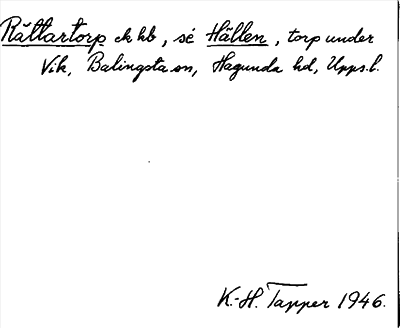 Rättartorp ek hb, sé Hällen, torp under
Vik, Balingsta sn, Hagunda hd, Upps.l.
K.-H. Tapper 1946.